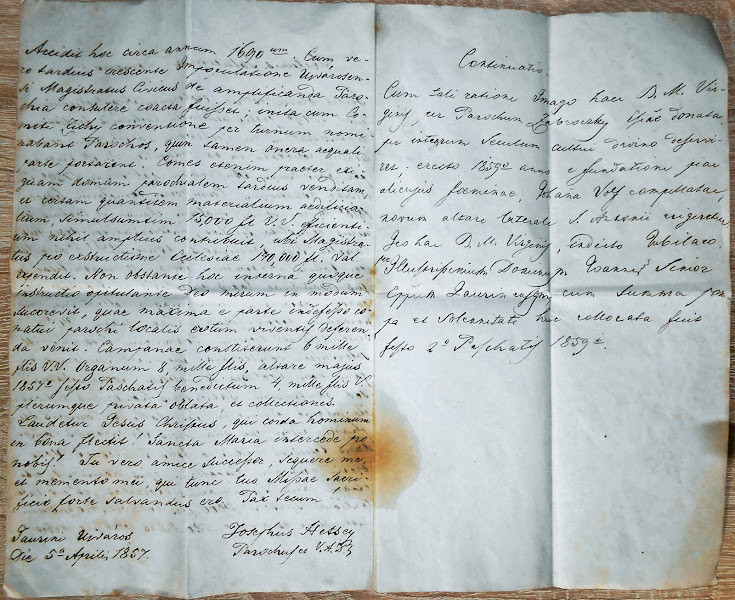 Accidit hoc circa annum 1690um. Cum ve-
ro tardius crescente Impopulatione Ujvárosen-
si Magistratus Civicus de amplificanda Paro-
chia consulere coacta fuisset, inita cum Co-
miti Zichy conventione per turnum nomi-
nabant Parochos, quin tamen onera aequali
parte portarent. Comes etenim praeter ex-
quam domum parochialem tardius venditam,
et cersam quantitatem materialium aedilita-
lium, simulsumtim 15,000 fl V.V. efficienti-
um nihil amplius contribuit, ubi Magistra-
tus pro exstructione Ecclesiae 170,000 fl. Val.
expendit. Non obstante hoc interna quoque
instructio opitulante Deo mirum in modum
succrevit, quae maxima e parte indefesso co-
natui parochi localis erotum viventis deferen-
da venit. Campanae constiterunt 6 mille
flis V.V. Organum 8 mille flis, altare majus
1857o festo Paschatis benedictum 4 mille flis V.
plerumque privata oblata, et collectiones.
Laudetur Jesus Christus, qui corda hominum
in bona flectit! Sancta Maria intercede pro
nobis! Tu vero, amice successor, sequere me,
et memento mei, qui tunc tuo Missae sacri-
ficio forte salvandus ero. Pax Tecum!
Jaurini Ujváros
Die 5a Aprilis 1857.
Josephus
Parochus
Continuatio.
Cum tali ratione Imago haec B. M. Vir-
ginis, per Parochum Zabroczky Ipsae donata
per integrum Seculum cultui divino deservi-
ret; ereito 1859o anno e fundatione piae
alicujus foeminae, Johana Volf compellatae,
novum altare laterale S. Antonii erigeretur
Ico haec B. M. Virginis, indicto Jubilaeo
per Illustrissimum Dominum Joannem Simor
Eppum Jauriensem cum summa pom-
pa et solemnitate huc collocata fuit
festo 2o Paschatis 1859o.